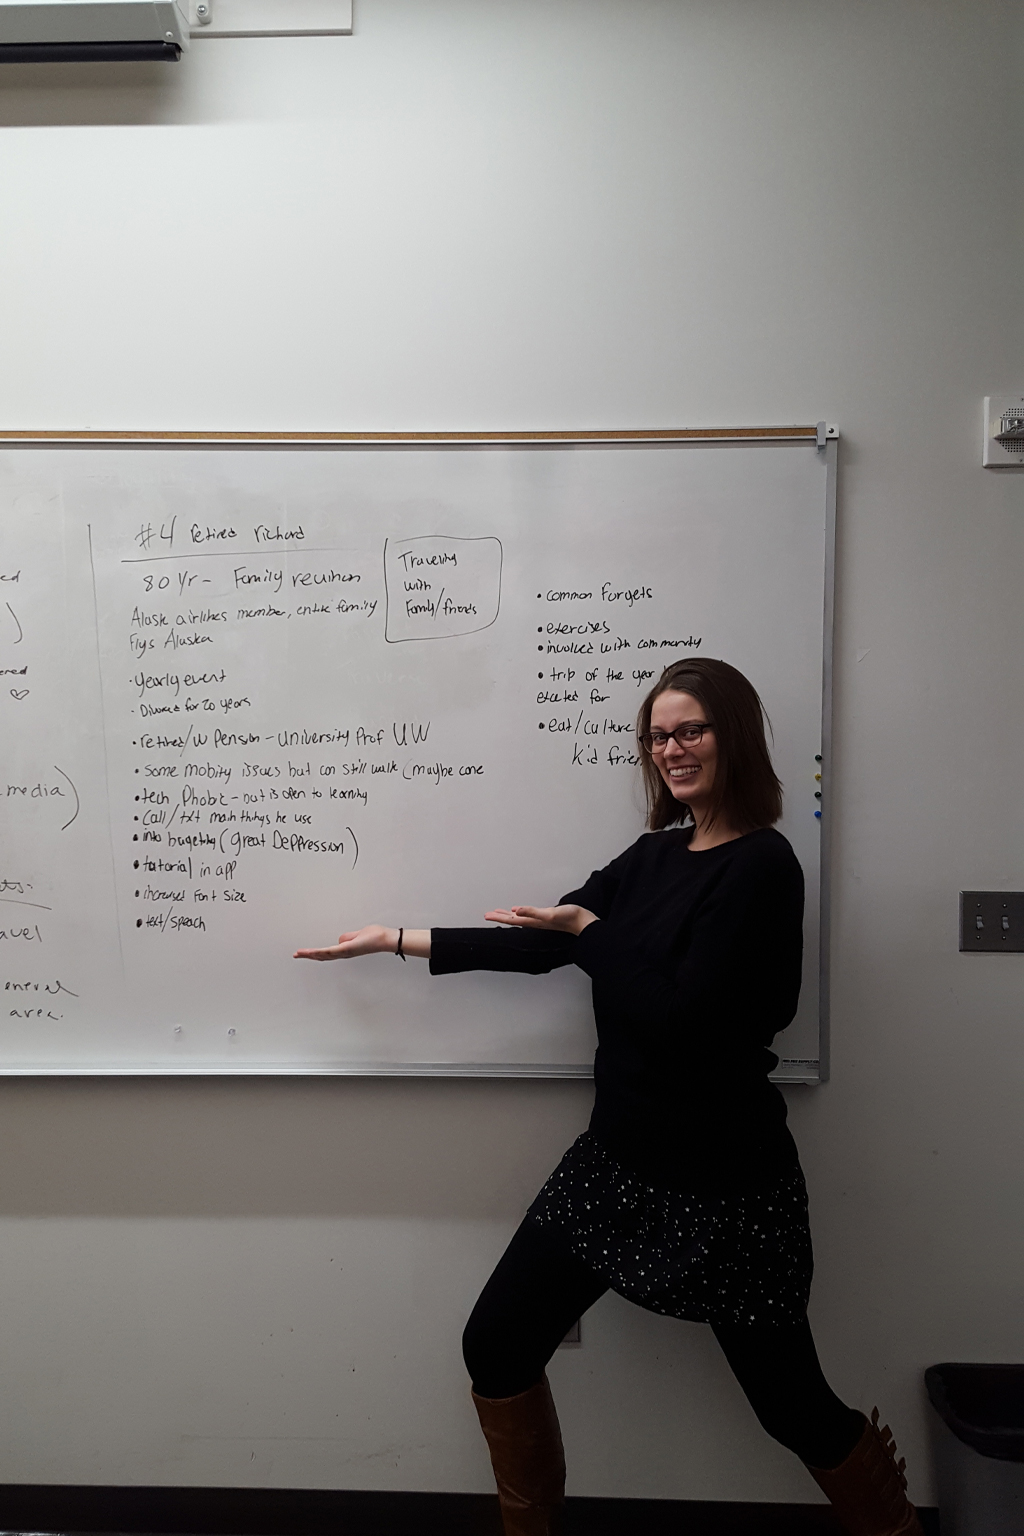 #4 retired richard
80 yr - Family reunion
Alask airlines member, entire family
Flys Alaska
Traveling
with
Family/friends
· yearly event
· Divorced for 20 years
• retired/w Pension - University Prof UW
• Some mobity issues but can still walk (maybe cane
• tech Phobic - but is open to learning
• Call/txt main things he use
• into bugeting (great Deppression)
• tutorial in app
• increased Font Size
• text/speach
• common Forgets
• exercises
• involved with community
• trip of the year
excited for
• eat/culture
kid frien
ed
)
ered
♡
media)
ts-
avel
eneral
area.